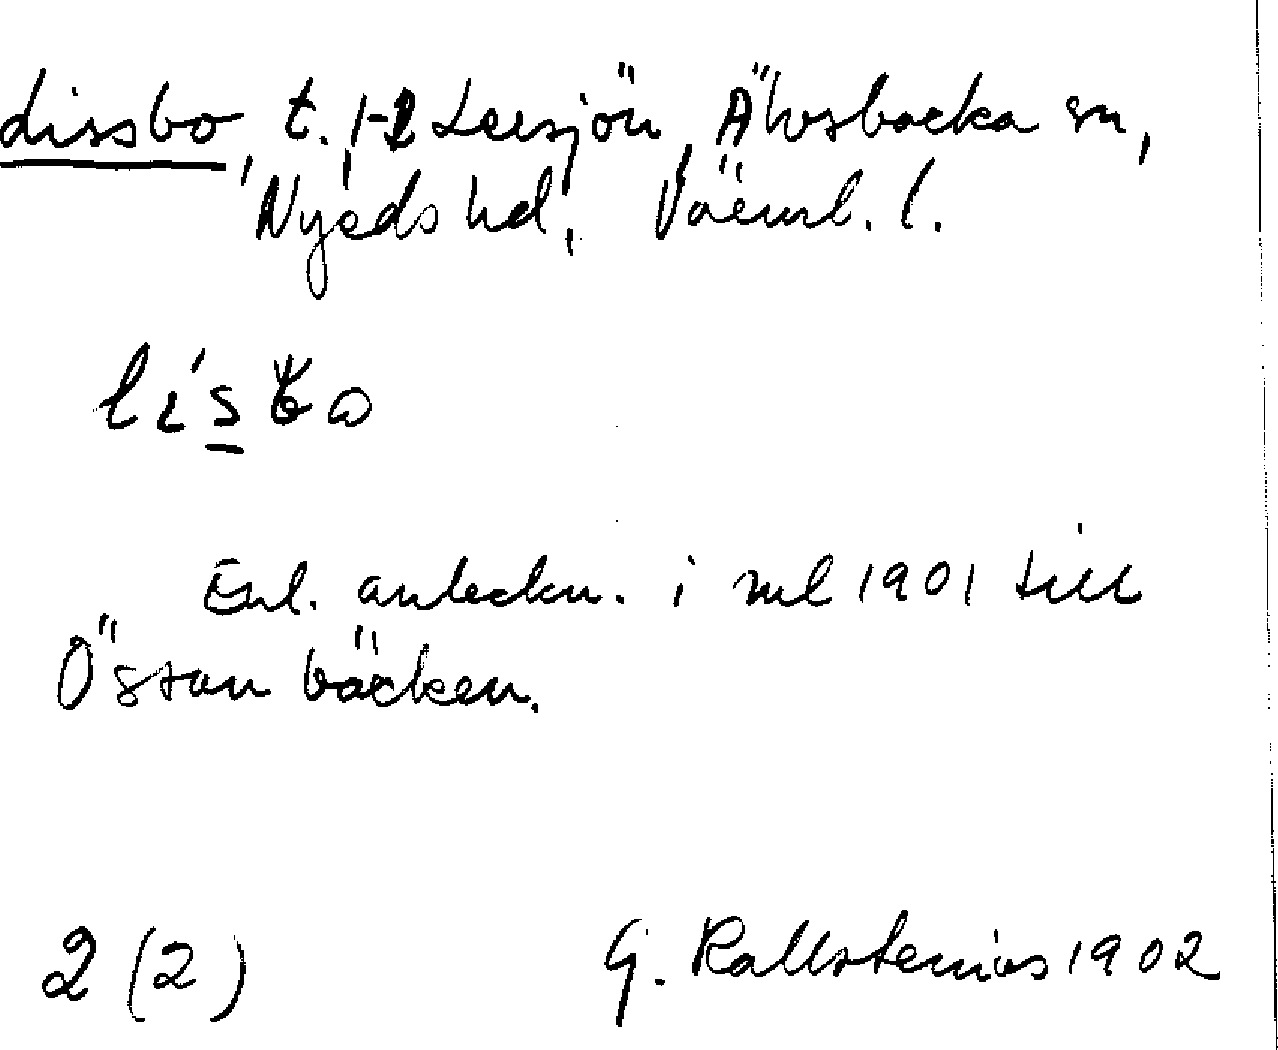 Lissbo, t. 1-2 Lersjön, Älvsbacka sn,
Nyeds hd, Värml. l.
Enl. anteckn. i ml 1901 till
Östan bäcken.
2 (2) G. Kallstenius 1902